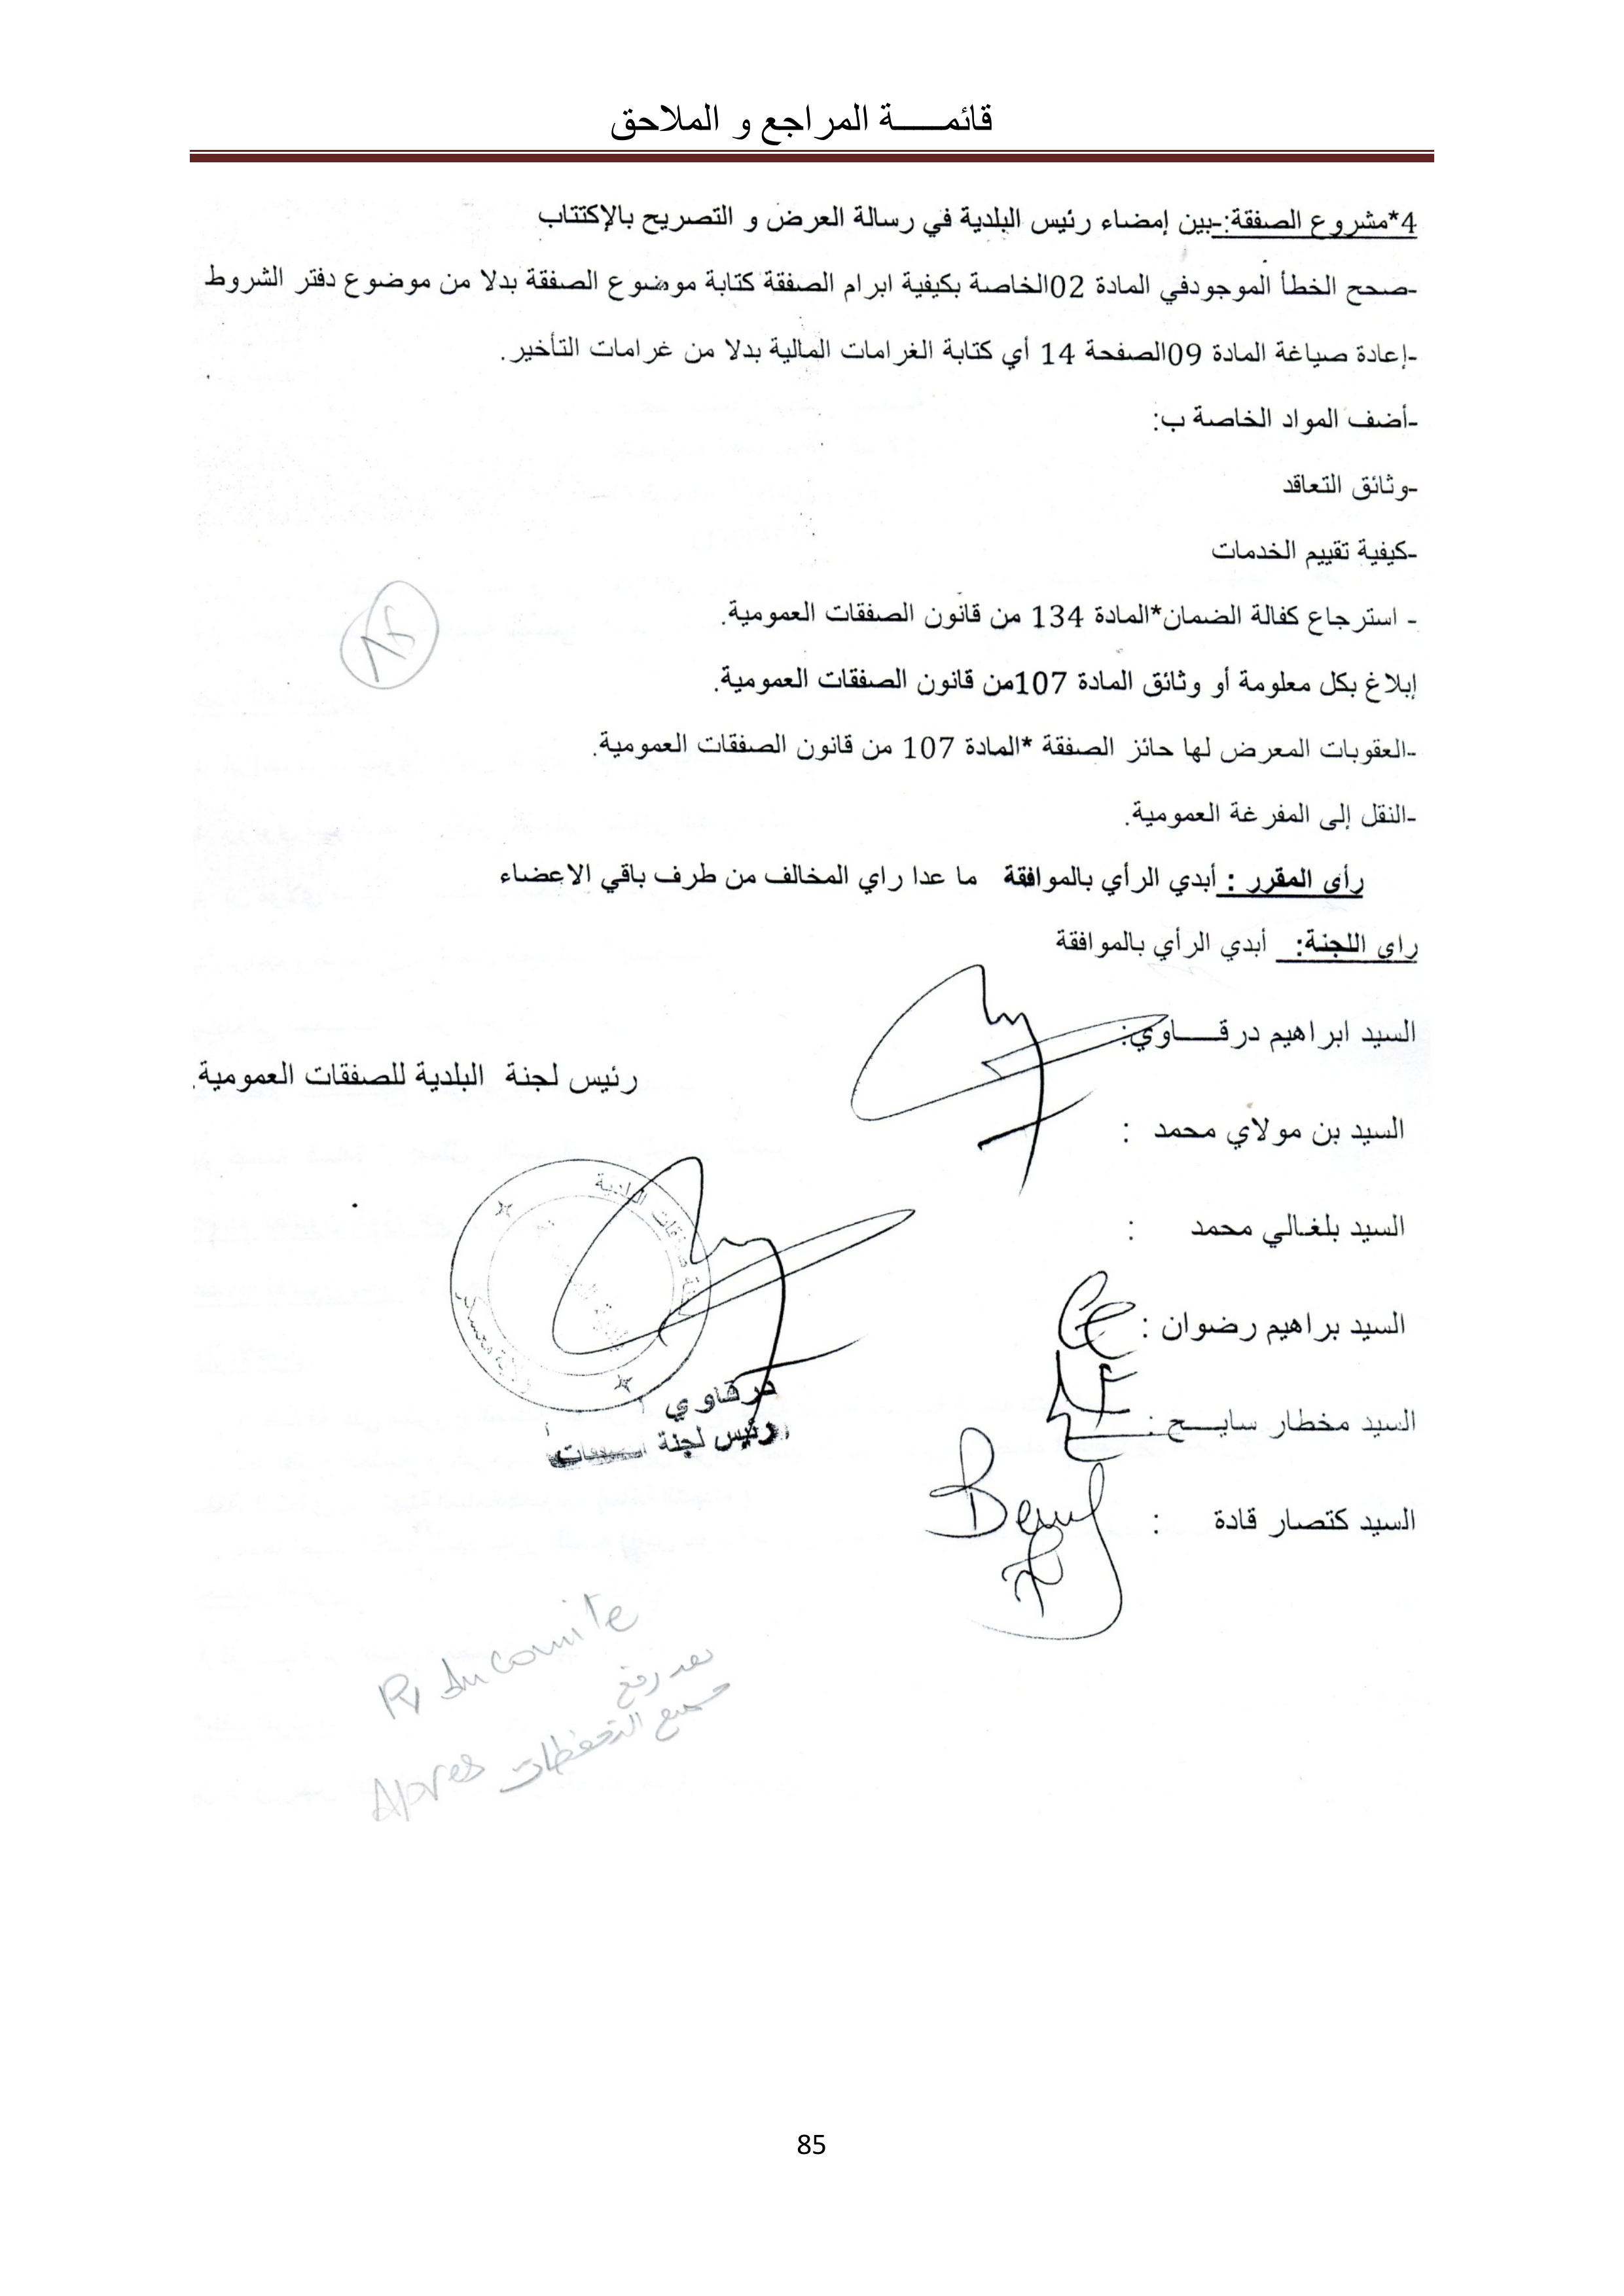 قائمـــــة المراجع و الملاحق
4*مشروع الصفقة:-بين إمضاء رئيس البلدية في رسالة العرض و التصريح بالإكتتاب
-صحح الخطأ الموجودفي المادة 02الخاصة بكيفية ابرام الصفقة كتابة موضوع الصفقة بدلا من موضوع دفتر الشروط
-إعادة صياغة المادة 09الصفحة 14 أي كتابة الغرامات المالية بدلا من غرامات التأخير.
-أضف المواد الخاصة ب:
-وثائق التعاقد
-كيفية تقييم الخدمات
- استرجاع كفالة الضمان*المادة 134 من قانون الصفقات العمومية.
إبلاغ بكل معلومة أو وثائق المادة 107من قانون الصفقات العمومية.
-العقوبات المعرض لها حائز الصفقة *المادة 107 من قانون الصفقات العمومية.
-النقل إلى المفرغة العمومية.
رأي المقرر : أبدي الرأي بالموافقة ما عدا راي المخالف من طرف باقي الاعضاء
راي اللجنة: أبدي الرأي بالموافقة
السيد ابراهيم درقــــاوي:
رئيس لجنة البلدية للصفقات العمومية.
السيد بن مولاي محمد :
السيد بلغالي محمد :
السيد براهيم رضوان :
السيد مخطار سايـــح :
درقاوي
رئيس لجنة
السيد كتصار قادة :
Pv du comite
بعد رفع
جميع التحفظات
Apres
85